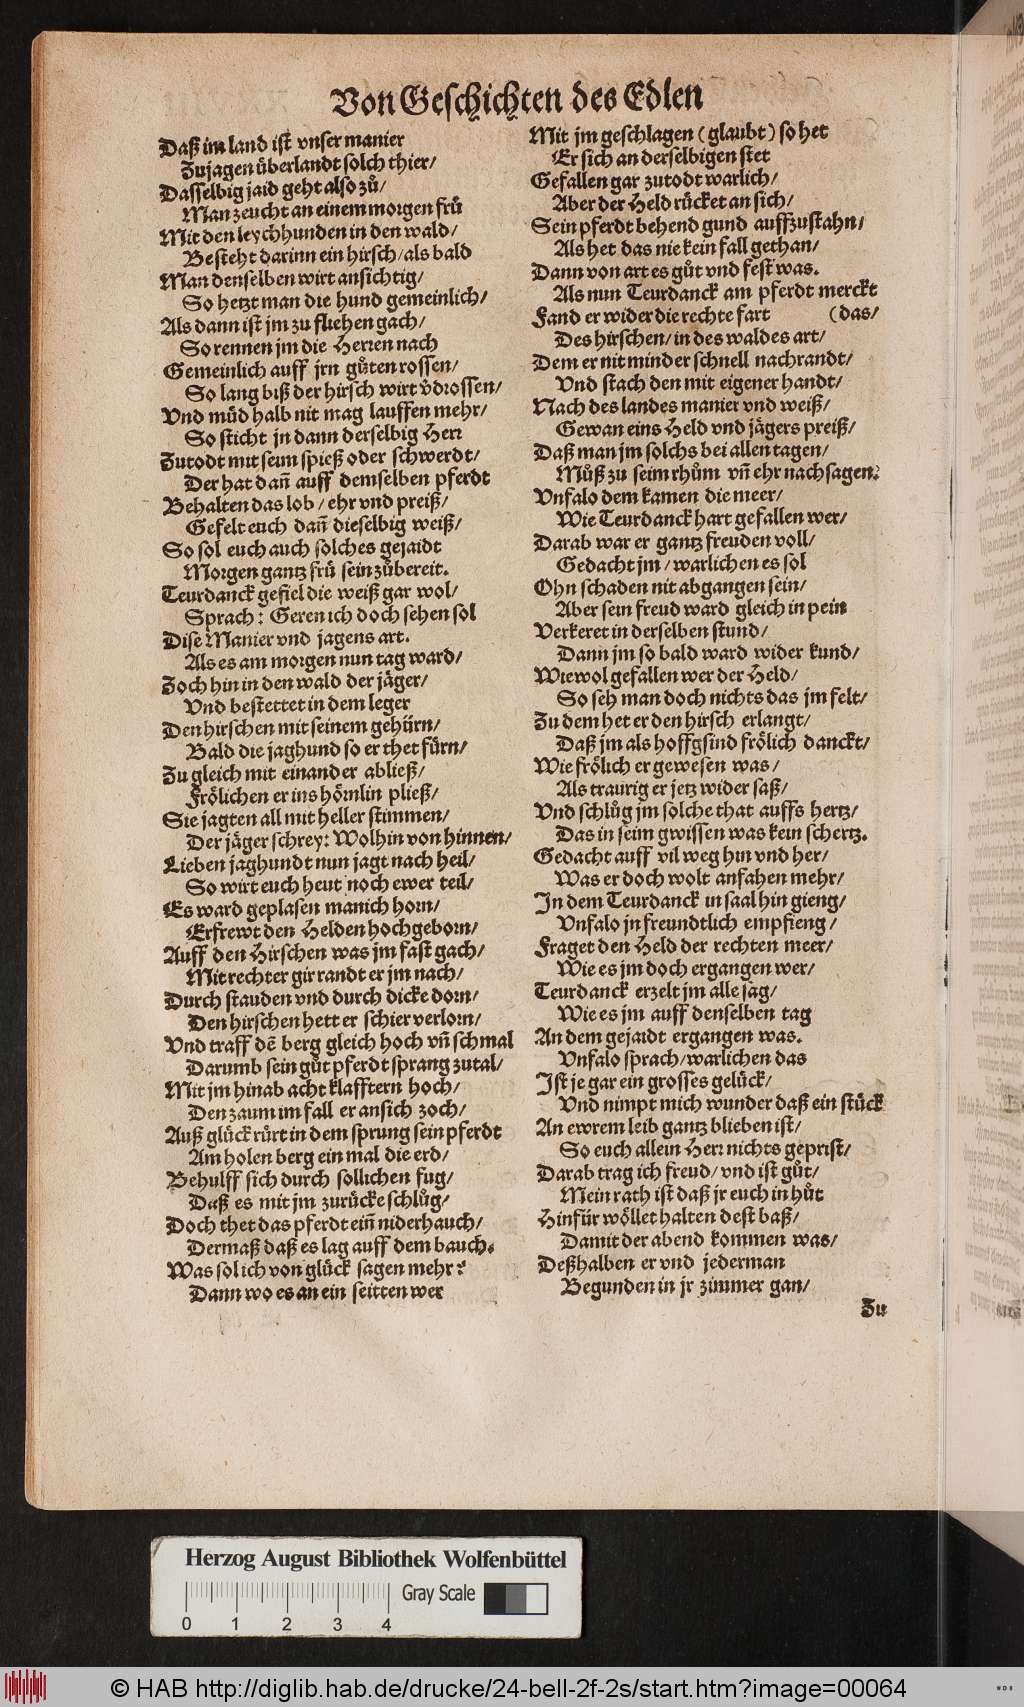 Von Geschichten des Edlen
Daß im land ist vnser manier
Zujagen überlandt solch thier/
Dasselbig jaid geht also zů/
Man zeucht an einem morgen frü
Mit den leychhunden in den wald/
Besteht darinn ein hirsch/als bald
Man denselben wirt ansichtig/
So hetzt man die hund gemeinlich/
Als dann ist jm zu fliehen gach/
So rennen jm die Herren nach
Gemeinlich auff jrn gůten rossen/
So lang biß der hirsch wirt v̈drossen/
Vnd müd halb nit mag lauffen mehr/
So sticht jn dann derselbig Herr
Zutodt mit seim spieß oder schwerdt/
Der hat dañ auff demselben pferdt
Behalten das lob/ehr vnd preiß/
Gefelt euch dañ dieselbig weiß/
So sol euch auch solches gejaidt
Morgen gantz frü sein zůbereit.
Teurdanck gefiel die weiß gar wol/
Sprach: Geren ich doch sehen sol
Dise Manier vnd jagens art.
Als es am morgen nun tag ward/
Zoch hin in den wald der jäger/
Vnd bestettet in dem leger
Den hirschen mit seinem gehürn/
Bald die jaghund so er thet fürn/
Zu gleich mit einander abließ/
Frölichen er ins hörnlin pließ/
Sie jagten all mit heller stimmen/
Der jäger schrey: Wolhin von hinnen/
Lieben jaghundt nun jagt nach heil/
So wirt euch heut noch ewer teil/
Es ward geplasen manich horn/
Erfrewt den Helden hochgeborn/
Auff den Hirschen was jm fast gach/
Mit rechter gir randt er jm nach/
Durch stauden vnd durch dicke dorn/
Den hirschen hett er schier verlorn/
Vnd traff dē berg gleich hoch vñ schmal
Darumb sein gůt pferdt sprang zutal/
Mit jm hinab acht klafftern hoch/
Den zaum im fall er an sich zoch/
Auß glück rürt in dem sprung sein pferdt
Am holen berg ein mal die erd/
Behulff sich durch sollichen fug/
Daß es mit jm zurücke schlůg/
Doch thet das pferdt eiñ niderhauch/
Dermaß daß es lag auff dem bauch.
Was sol ich von glück sagen mehr?
Dann wo es an ein seitten wer
Mit jm geschlagen (glaubt) so het
Er sich an derselbigen stet
Gefallen gar zutodt warlich/
Aber der Held rücket an sich/
Sein pferdt behend gund auffzustahn/
Als het das nie kein fall gethan/
Dann von art es gůt vnd fest was.
Als nun Teurdanck am pferdt merckt
Fand er wider die rechte fart (das/
Des hirschen/in des waldes art/
Dem er nit minder schnell nachrandt/
Vnd stach den mit eigener handt/
Nach des landes manier vnd weiß/
Gewan eins Held vnd jägers preiß/
Daß man jm solchs bei allen tagen/
Můß zu seim rhům vñ ehr nachsagen.
Vnfalo dem kamen die meer/
Wie Teurdanck hart gefallen wer/
Darab war er gantz freuden voll/
Gedacht jm/warlichen es sol
Ohn schaden nit abgangen sein/
Aber sein freud ward gleich in pein
Verkeret in derselben stund/
Dann jm so bald ward wider kund/
Wiewol gefallen wer der Held/
So seh man doch nichts das jm felt/
Zu dem het er den hirsch erlangt/
Daß jm als hoffgsind frölich danckt/
Wie frölich er gewesen was/
Als traurig er jetz wider saß/
Vnd schlůg jm solche that auffs hertz/
Das in seim gwissen was kein schertz.
Gedacht auff vil weg hin vnd her/
Was er doch wolt anfahen mehr/
In dem Teurdanck in saal hin gieng/
Vnfalo jn freundtlich empfieng/
Fraget den Held der rechten meer/
Wie es jm doch ergangen wer/
Teurdanck erzelt jm alle sag/
Wie es jm auff denselben tag
An dem gejaidt ergangen was.
Vnfalo sprach/warlichen das
Ist je gar ein grosses gelück/
Vnd nimpt mich wunder daß ein stück
An ewrem leib gantz blieben ist/
So euch allein Herr nichts geprist/
Darab trag ich freud/vnd ist gůt/
Mein rath ist daß jr euch in hůt
Hinfür wöllet halten dest baß/
Damit der abend kommen was/
Deßhalben er vnd jederman
Begunden in jr zimmer gan/
Zu
Herzog August Bibliothek Wolfenbüttel
Gray Scale
0 1 2 3 4
© HAB http://diglib.hab.de/drucke/24-bell-2f-2s/start.htm?image=00064